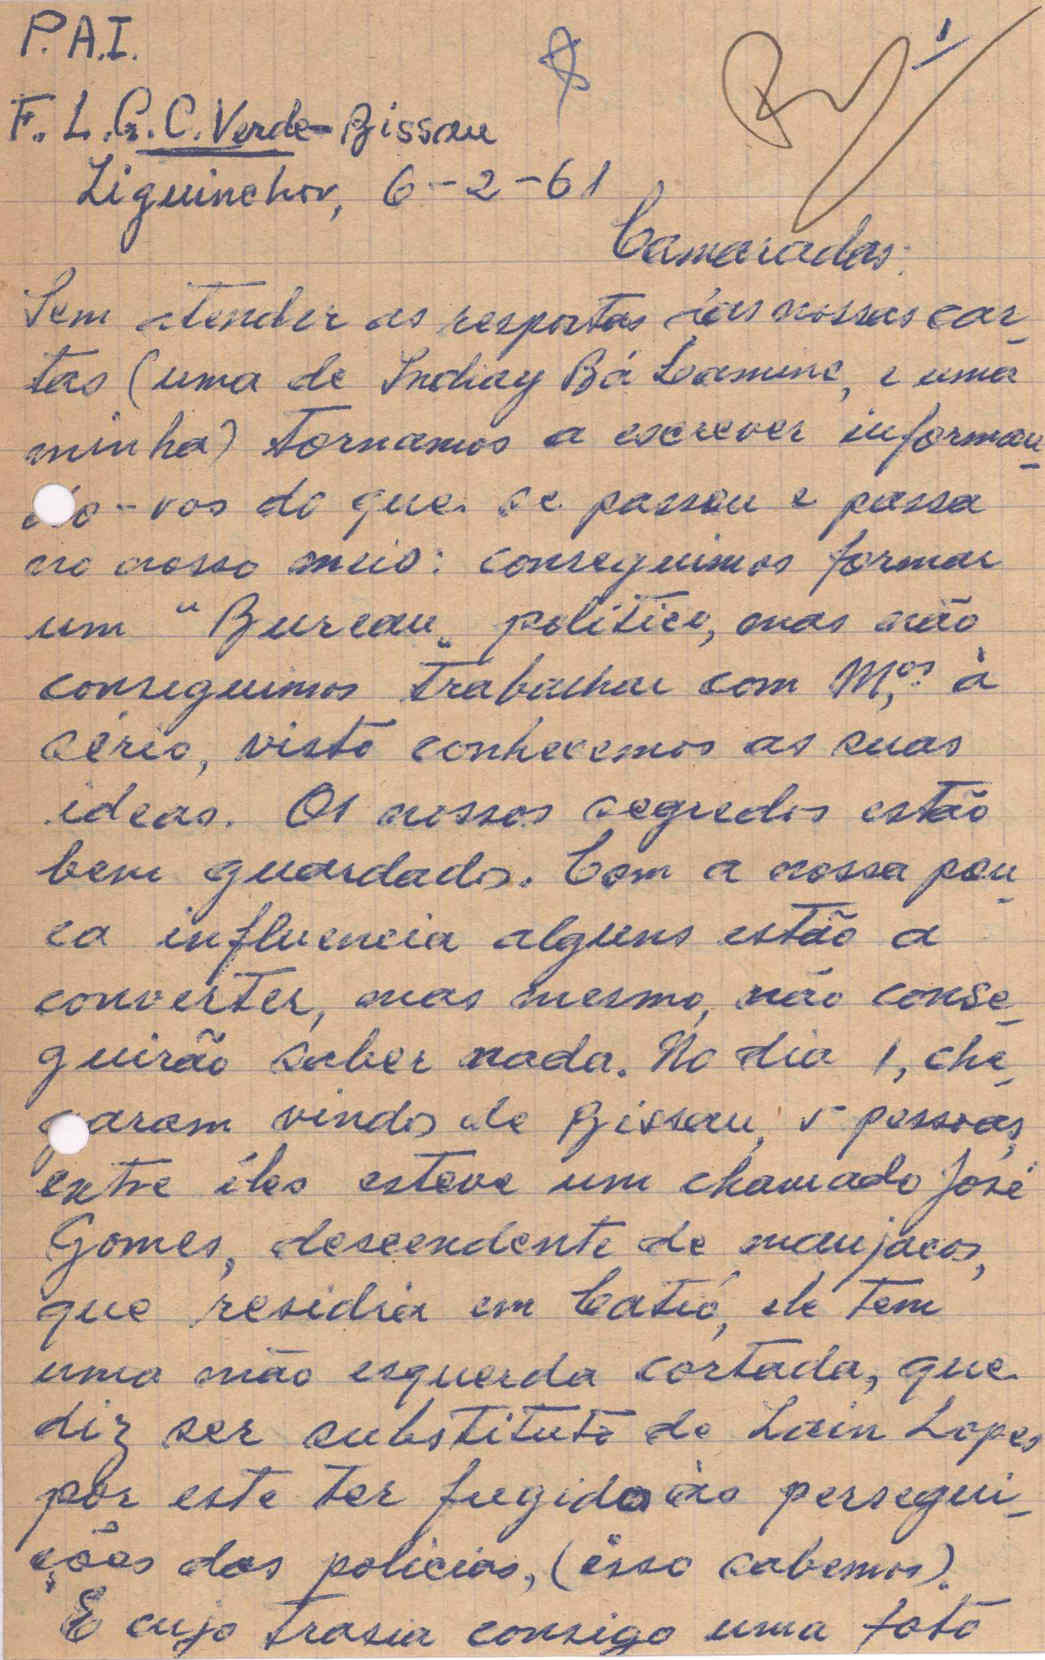 P.A.I.
1
F. L. G. C. Verde-Bissau
Ziguinchor, 6-2-61
Camaradas:
Sem atender as respostas das nossas car-
tas (uma de Indiay Bá Camine, e uma
minha) tornamos a escrever informan-
do-vos do que se passou e passa
no nosso meio: conseguimos formar
um "Bureau" politico, mas não
conseguimos trabalhar com M,os à
sério, visto conhecemos as suas
ideas. Os nossos segredos estão
bem guardados. Com a nossa pou-
ca influencia alguns estão a
converter, mas mesmo, não conse-
guirão saber nada. No dia 1, che-
garam vindos de Bissau, 5 pessoas,
entre êles esteve um chamado José
Gomes, descendente de manjacos,
que residia em Catió, ele tem
uma mão esquerda cortada, que
diz ser substituto de Lain Lopes
por este ter fugido às persegui-
ções dos policias, (isso sabemos).
E cujo trasia consigo uma foto